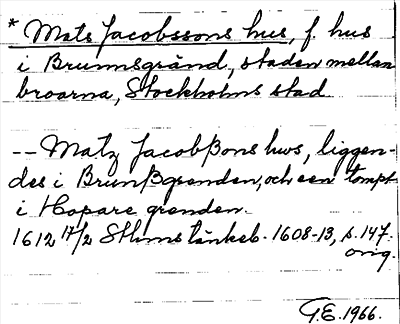 * Mats Jacobssons hus, f. hus
i Brunnsgränd, staden mellan
broarna, Stockholms stad
-- Matz Jacobßons hws, liggen-
des i Brunßgrenden, och een tompt
i Hopare grenden.
1612 17/2 Sthms tänkeb. 1608-13, s. 147.
orig.
G.E. 1966.